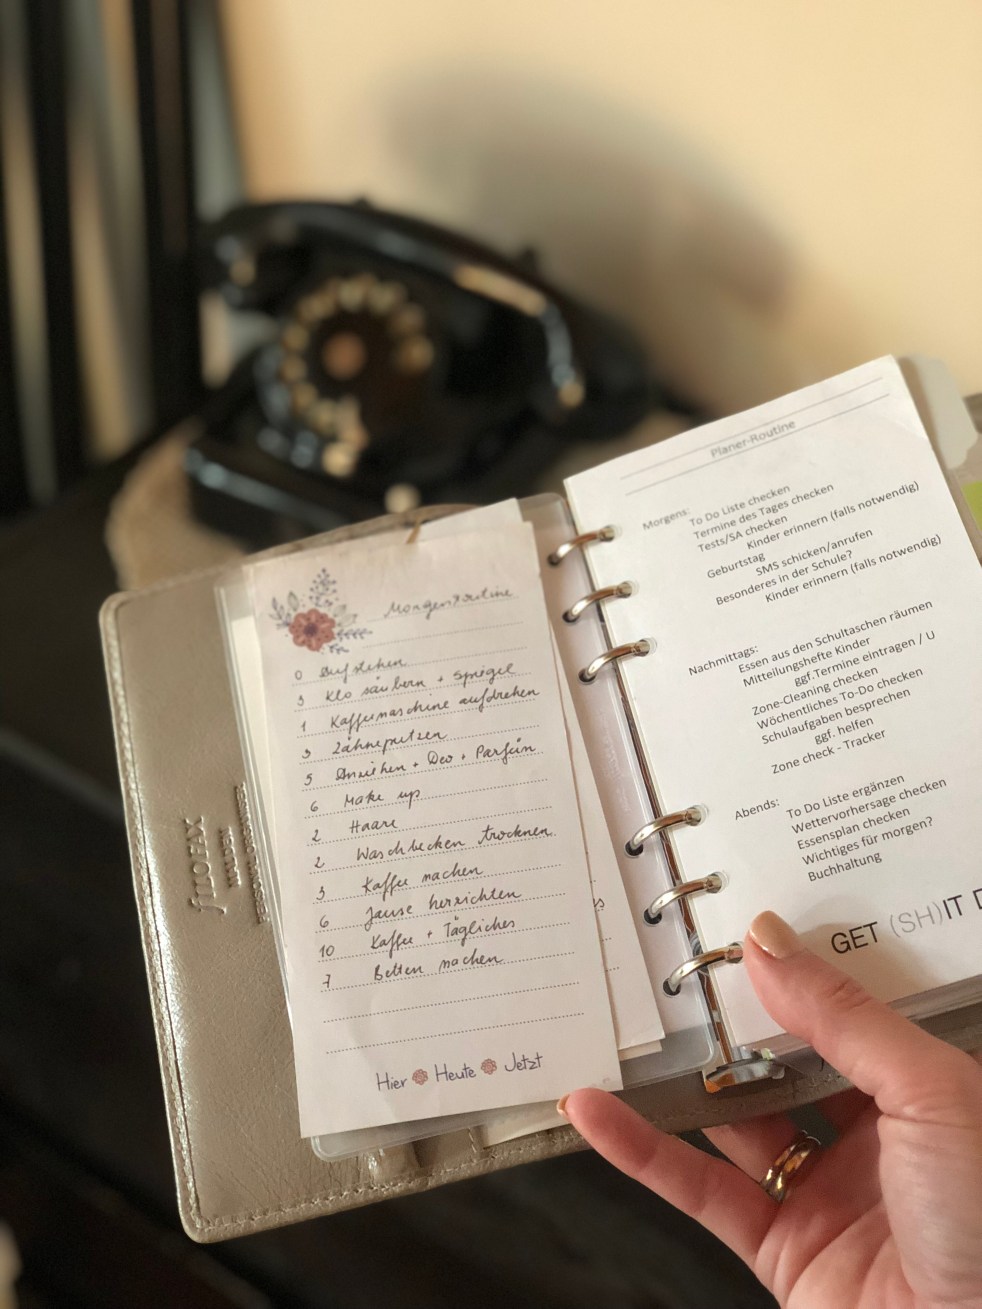 filofax
Morgenroutine
0 Aufstehen
3 Klo säubern + Spiegel
1 Kaffeemaschine aufdrehen
3 Zähneputzen
5 Anziehen + Deo + Parfüm
6 Make up
2 Haare
2 Waschbecken trocknen
3 Kaffee machen
6 Jause herrichten
10 Kaffee + Tägliches
7 Betten machen
Hier Heute Jetzt
Planer-Routine
Morgens:
To Do Liste checken
Termine des Tages checken
Tests/SA checken
Kinder erinnern (falls notwendig)
Geburtstag
SMS schicken/anrufen
Besonderes in der Schule?
Kinder erinnern (falls notwendig)
Nachmittags:
Essen aus den Schultaschen räumen
Mitteilungshefte Kinder
ggf.Termine eintragen / U
Zone-Cleaning checken
Wöchentliches To-Do checken
Schulaufgaben besprechen
ggf. helfen
Zone check - Tracker
Abends:
To Do Liste ergänzen
Wettervorhersage checken
Essensplan checken
Wichtiges für morgen?
Buchhaltung
GET (SH)IT D